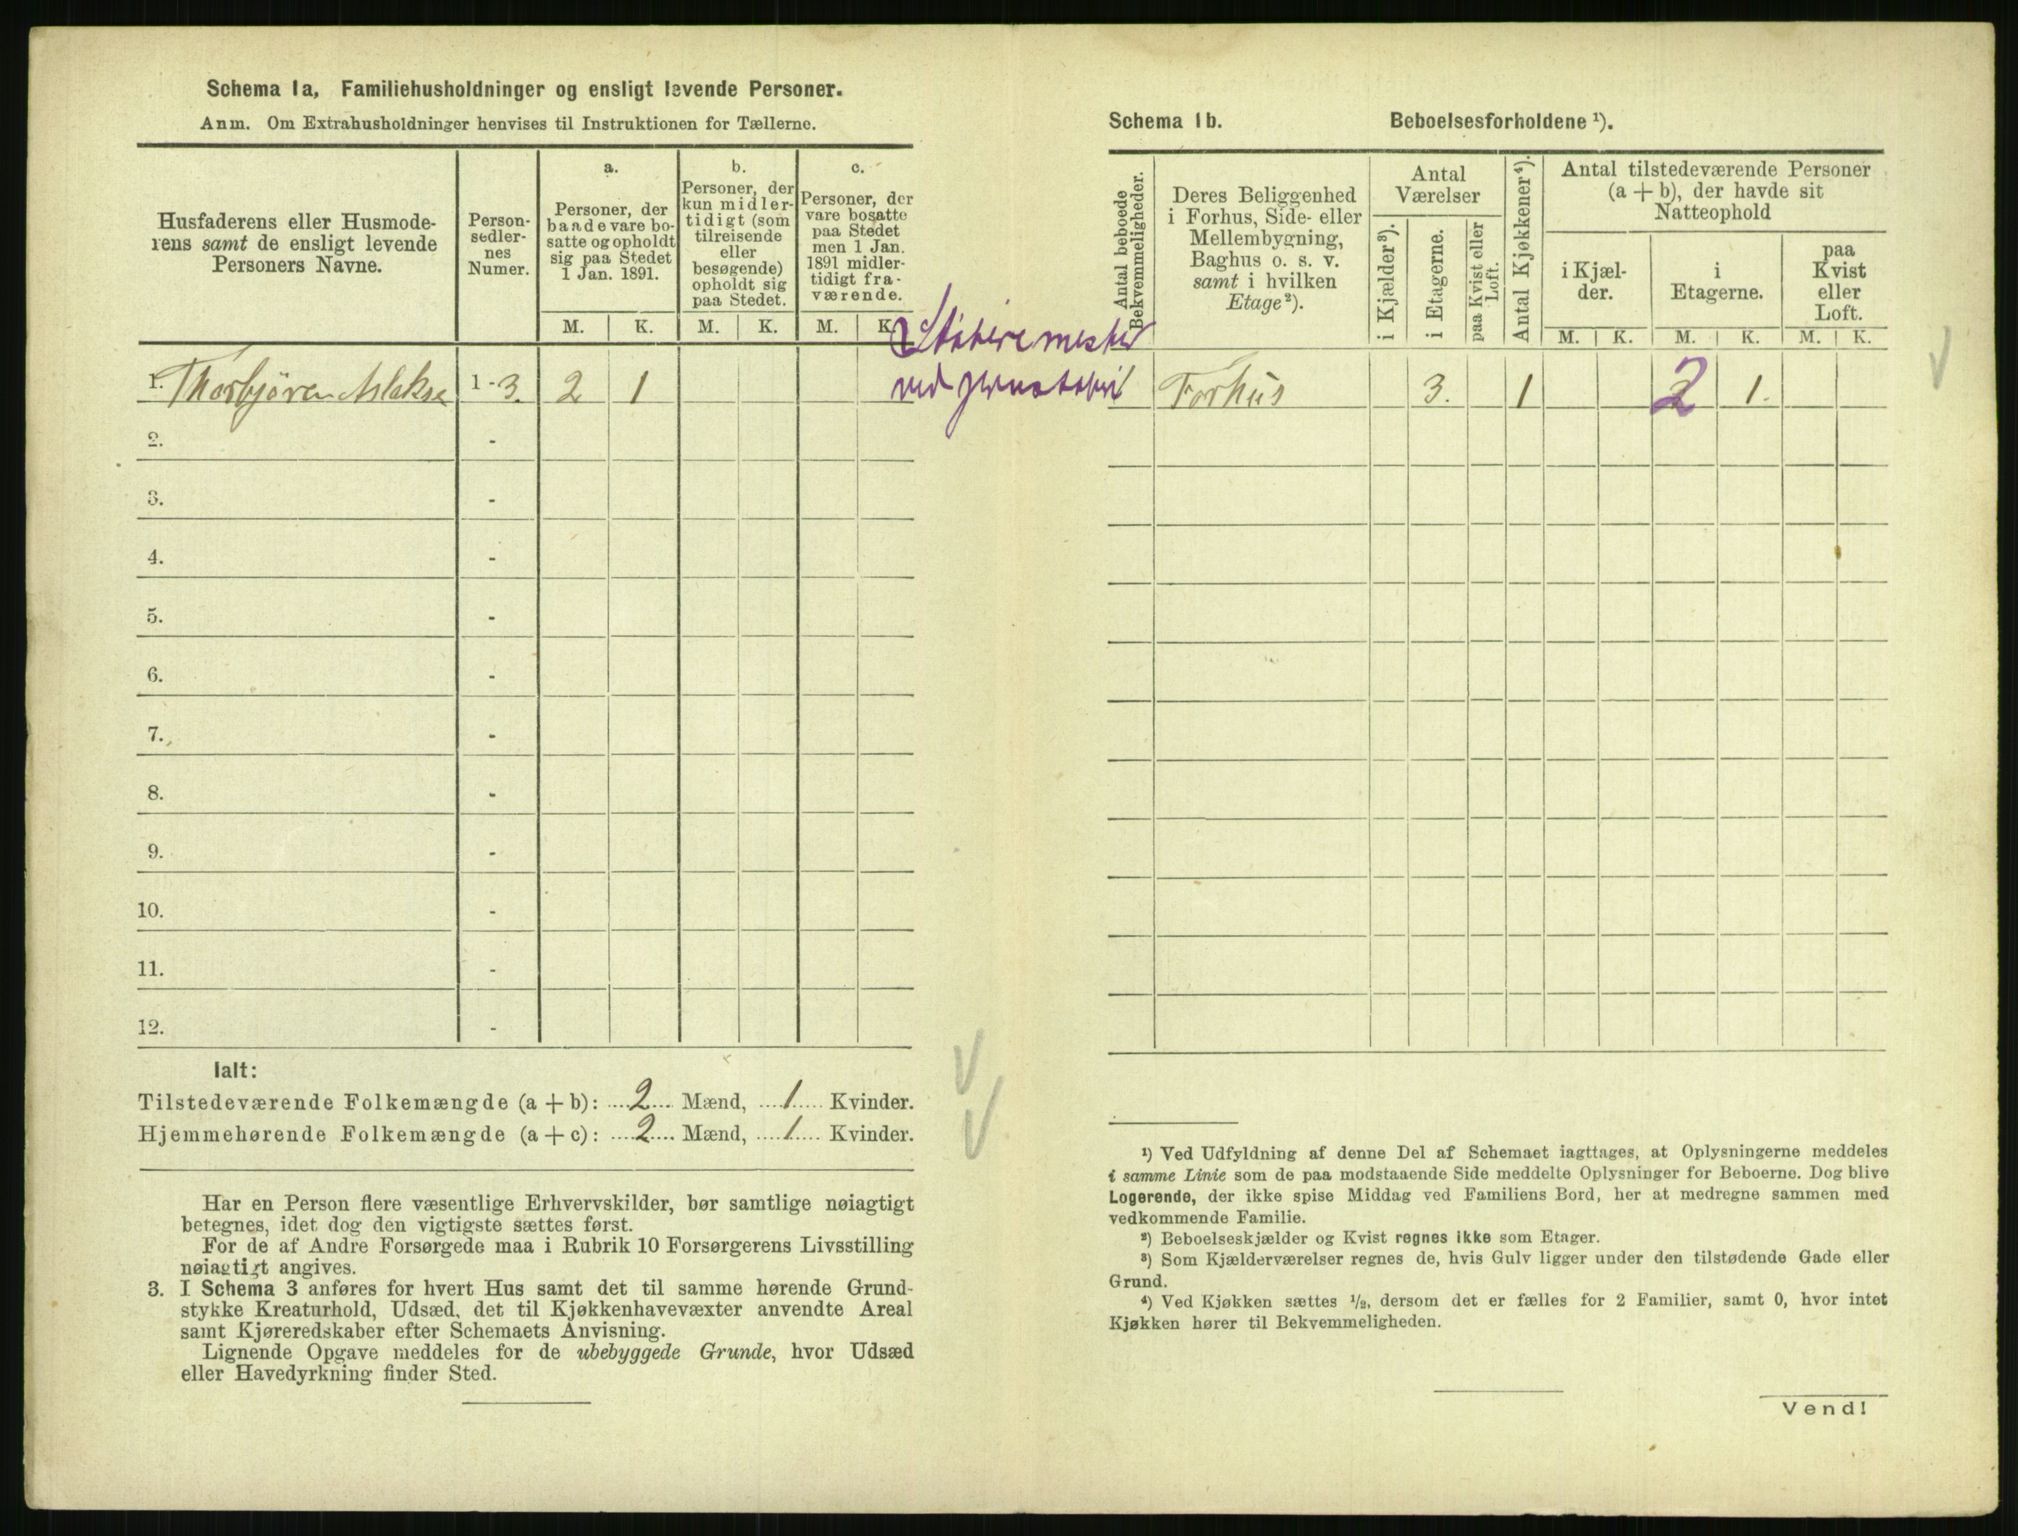 Schema 1a, Familiehusholdninger og ensligt levende Personer.
Anm. Om Extrahusholdninger henvises til Instruktionen for Tællerne.
Husfaderens eller Husmode-
rens samt de ensligt levende
Personers Navne.
Person-
sedler-
nes
Numer.
a.
Personer, der
baade vare bo-
satte og opholdt
sig paa Stedet
1 Jan. 1891.
b.
Personer, der
kun midler-
tidigt (som
tilreisende
eller
besøgende)
opholdt sig
paa Stedet.
c.
Personer, der
vare bosatte
paa Stedet
men 1 Jan.
1891 midler-
tidigt fra-
værende.
M. K. M. K. M. K.
Støberemester
ved
1. Thorbjörn Aslaksen 1 - 3. 2 1
2. -
3. -
4. -
5. -
6. -
7. -
8. -
9. -
10. -
11. -
12. -
Ialt:
Tilstedeværende Folkemængde (a + b): 2 Mænd, 1 Kvinder.
Hjemmehørende Folkemængde (a + c): 2 Mænd, 1 Kvinder.
Har en Person flere væsentlige Erhvervskilder, bør samtlige nøiagtigt
betegnes, idet dog den vigtigste sættes først.
For de af Andre Forsørgede maa i Rubrik 10 Forsørgerens Livsstilling
nøiagtigt angives.
3. I Schema 3 anføres for hvert Hus samt det til samme hørende Grund-
stykke Kreaturhold, Udsæd, det til Kjøkkenhavevæxter anvendte Areal
samt Kjøreredskaber efter Schemaets Anvisning.
Lignende Opgave meddeles for de ubebyggede Grunde, hvor Udsæd
eller Havedyrkning finder Sted.
Schema 1b. Beboelsesforholdene ¹).
Antal beboede
Bekvemmeligheder.
Deres Beliggenhed
i Forhus, Side- eller
Mellembygning,
Baghus o. s. v.
samt i hvilken
Etage ²).
Antal
Værelser
i Kjælder ³).
i Etagerne.
paa Kvist eller
Loft.
Antal Kjøkkener ⁴).
Antal tilstedeværende Personer
(a + b), der havde sit
Natteophold
i Kjæl-
der.
i
Etagerne.
paa
Kvist
eller
Loft.
M. K. M. K. M. K.
Forhus 3. 1 2 1.
¹) Ved Udfyldning af denne Del af Schemaet iagttages, at Oplysningerne meddeles
i samme Linie som de paa modstaaende Side meddelte Oplysninger for Beboerne. Dog blive
Logerende, der ikke spise Middag ved Familiens Bord, her at medregne sammen med
vedkommende Familie.
²) Beboelseskjælder og Kvist regnes ikke som Etager.
³) Som Kjælderværelser regnes de, hvis Gulv ligger under den tilstødende Gade eller
Grund.
⁴) Ved Kjøkken sættes ½, dersom det er fælles for 2 Familier, samt 0, hvor intet
Kjøkken hører til Bekvemmeligheden.
Vend!